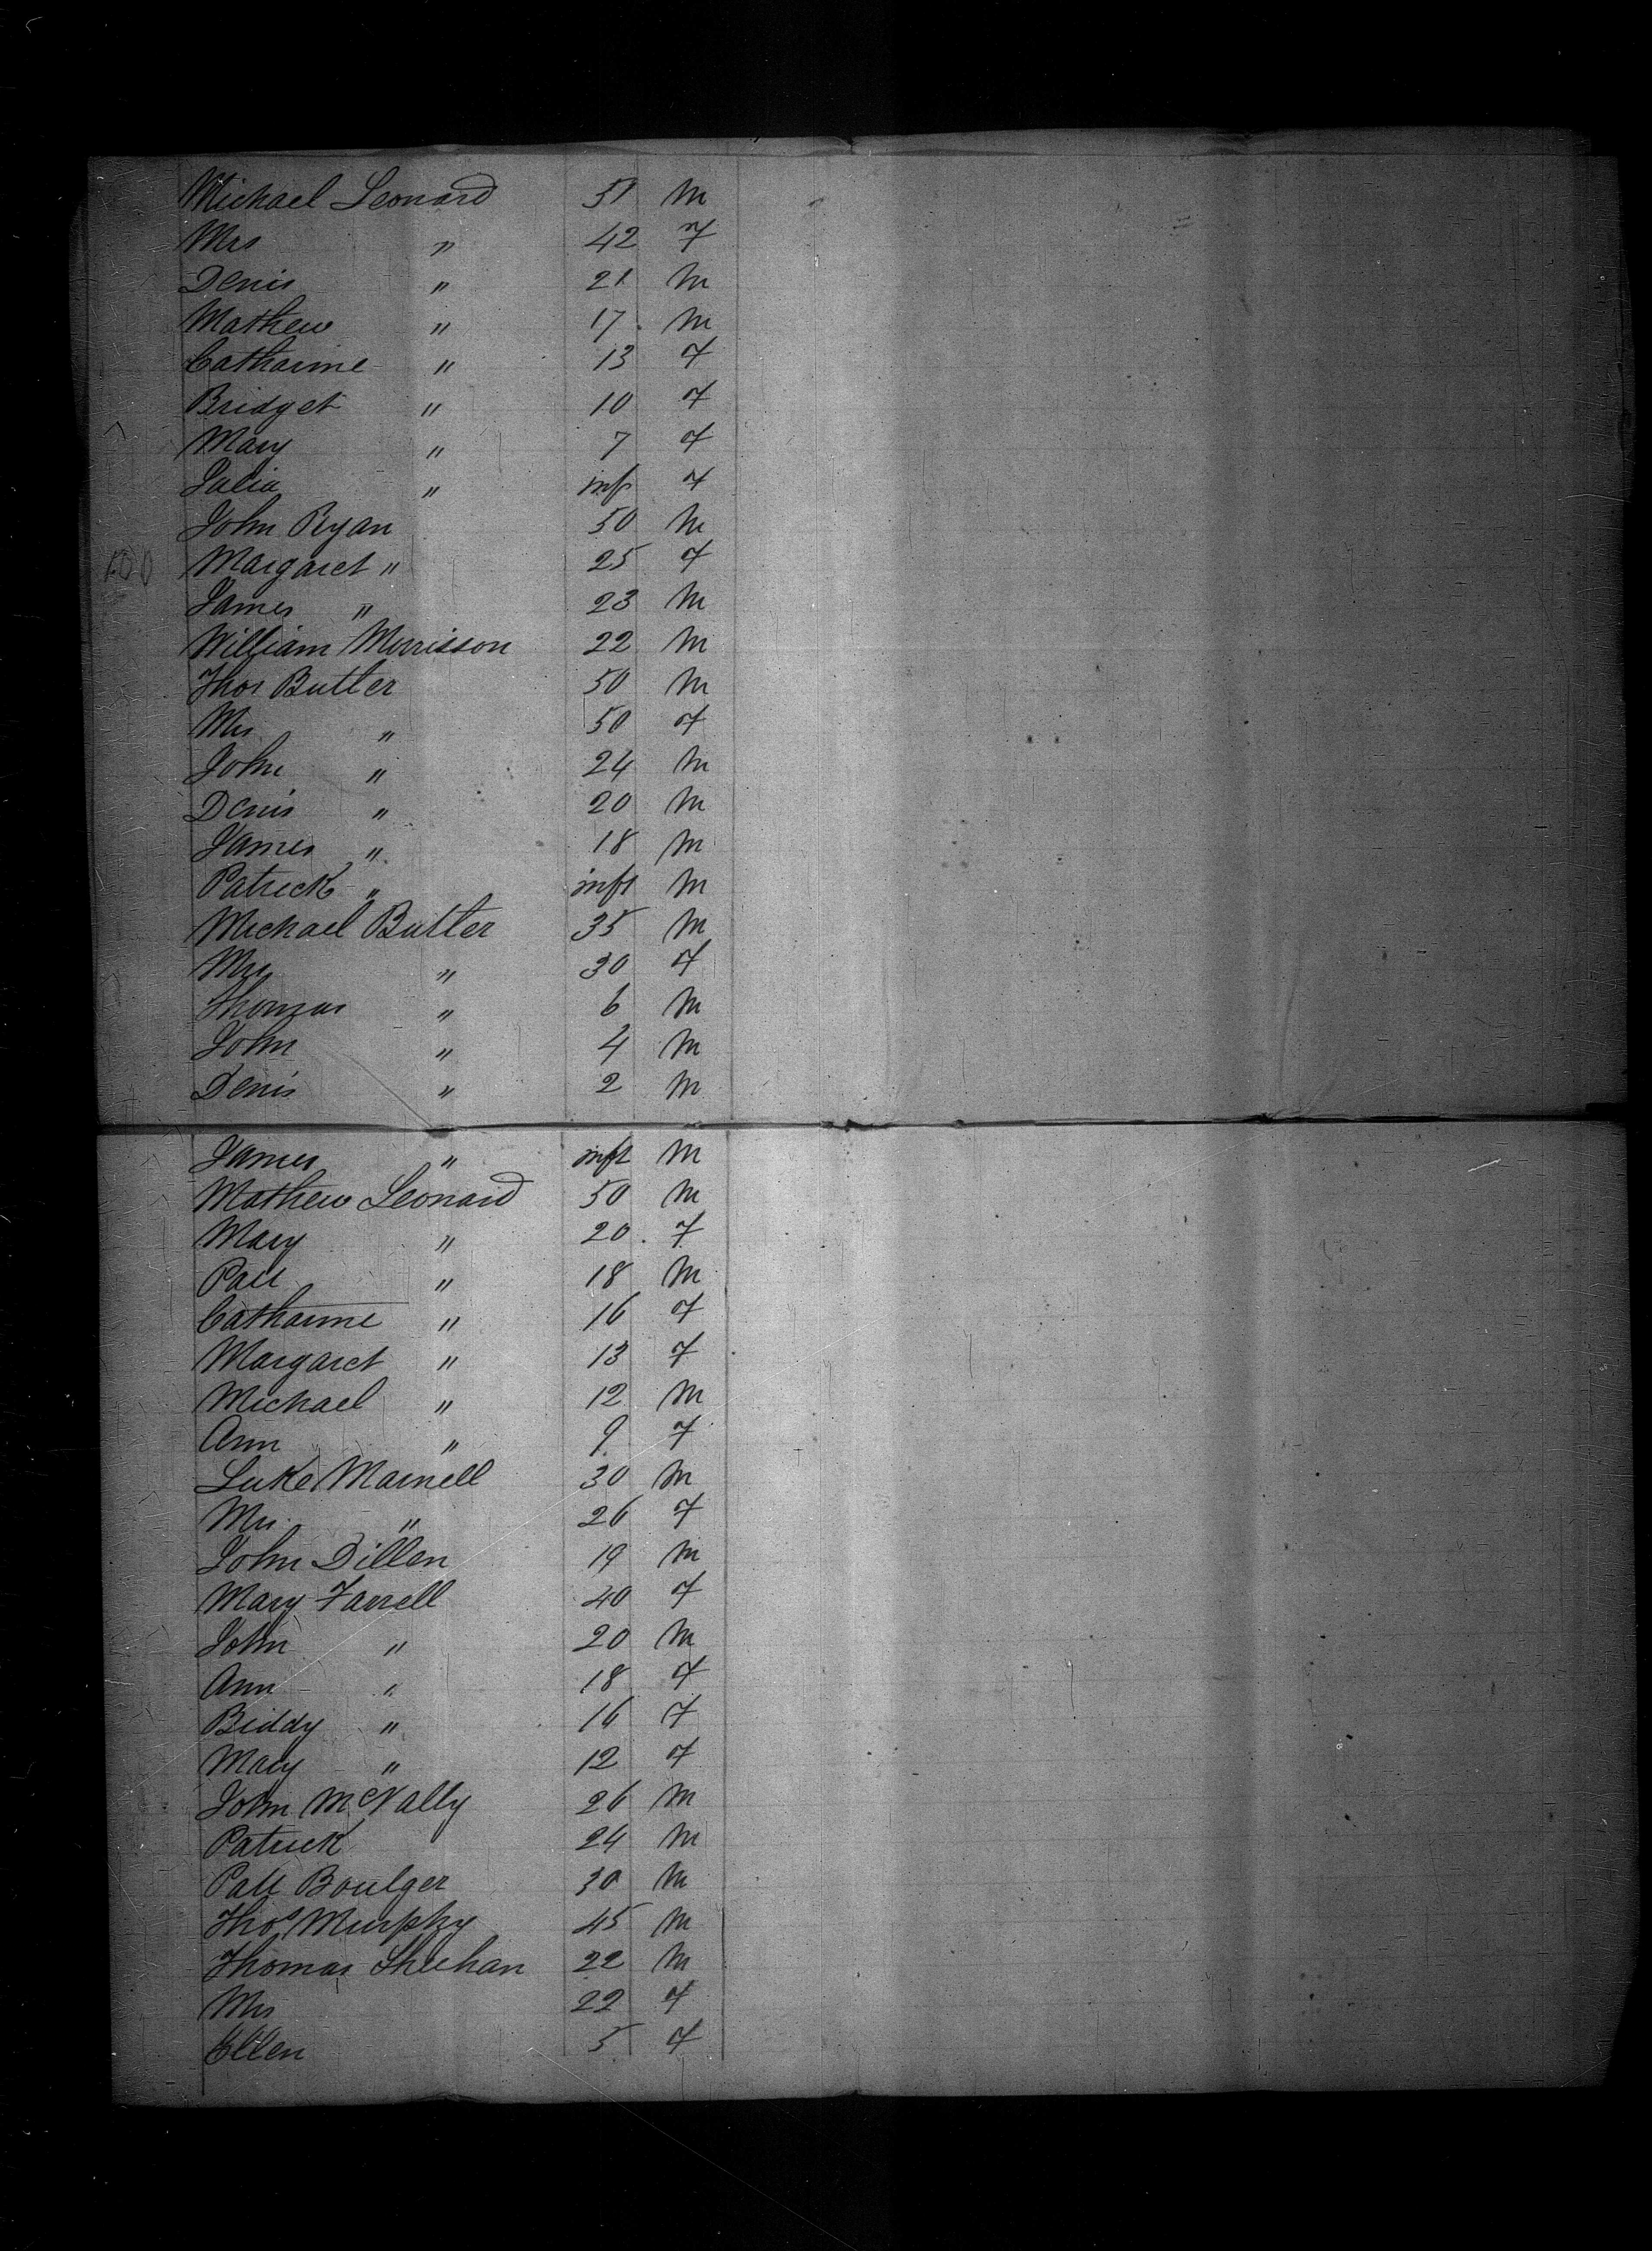 Michael Leonard 51 M
Mrs " 42 F
Denis " 21 M
Mathew " 17 M
Catharine " 13 F
Bridget " 10 F
Mary " 7 F
Julia " inf F
John Ryan 50 M
100 Margaret " 25 F
James " 23 M
William Morrisson 22 M
Thos Butler 50 M
Mrs " 50 F
John " 24 M
Denis " 20 M
James " 18 M
Patrick " inft M
Michael Butler 35 M
Mrs " 30 F
Thomas " 6 M
John " 4 M
Denis " 2 M
James " inft M
Mathew Leonard 50 M
Mary " 20 F
Patt " 18 M
Catharine " 16 F
Margaret " 13 F
Michael " 12 M
Ann " 9 F
Luke Marnell 30 M
Mrs " 26 F
John Dillen 19 M
Mary Farrell 40 F
John " 20 M
Ann " 18 F
Biddy " 16 F
Mary " 12 F
John McNally 26 M
Patrick 24 M
Patt Boulger 30 M
Thos Murphy 45 M
Thomas Sheehan 22 M
Mrs 22 F
Ellen 5 F